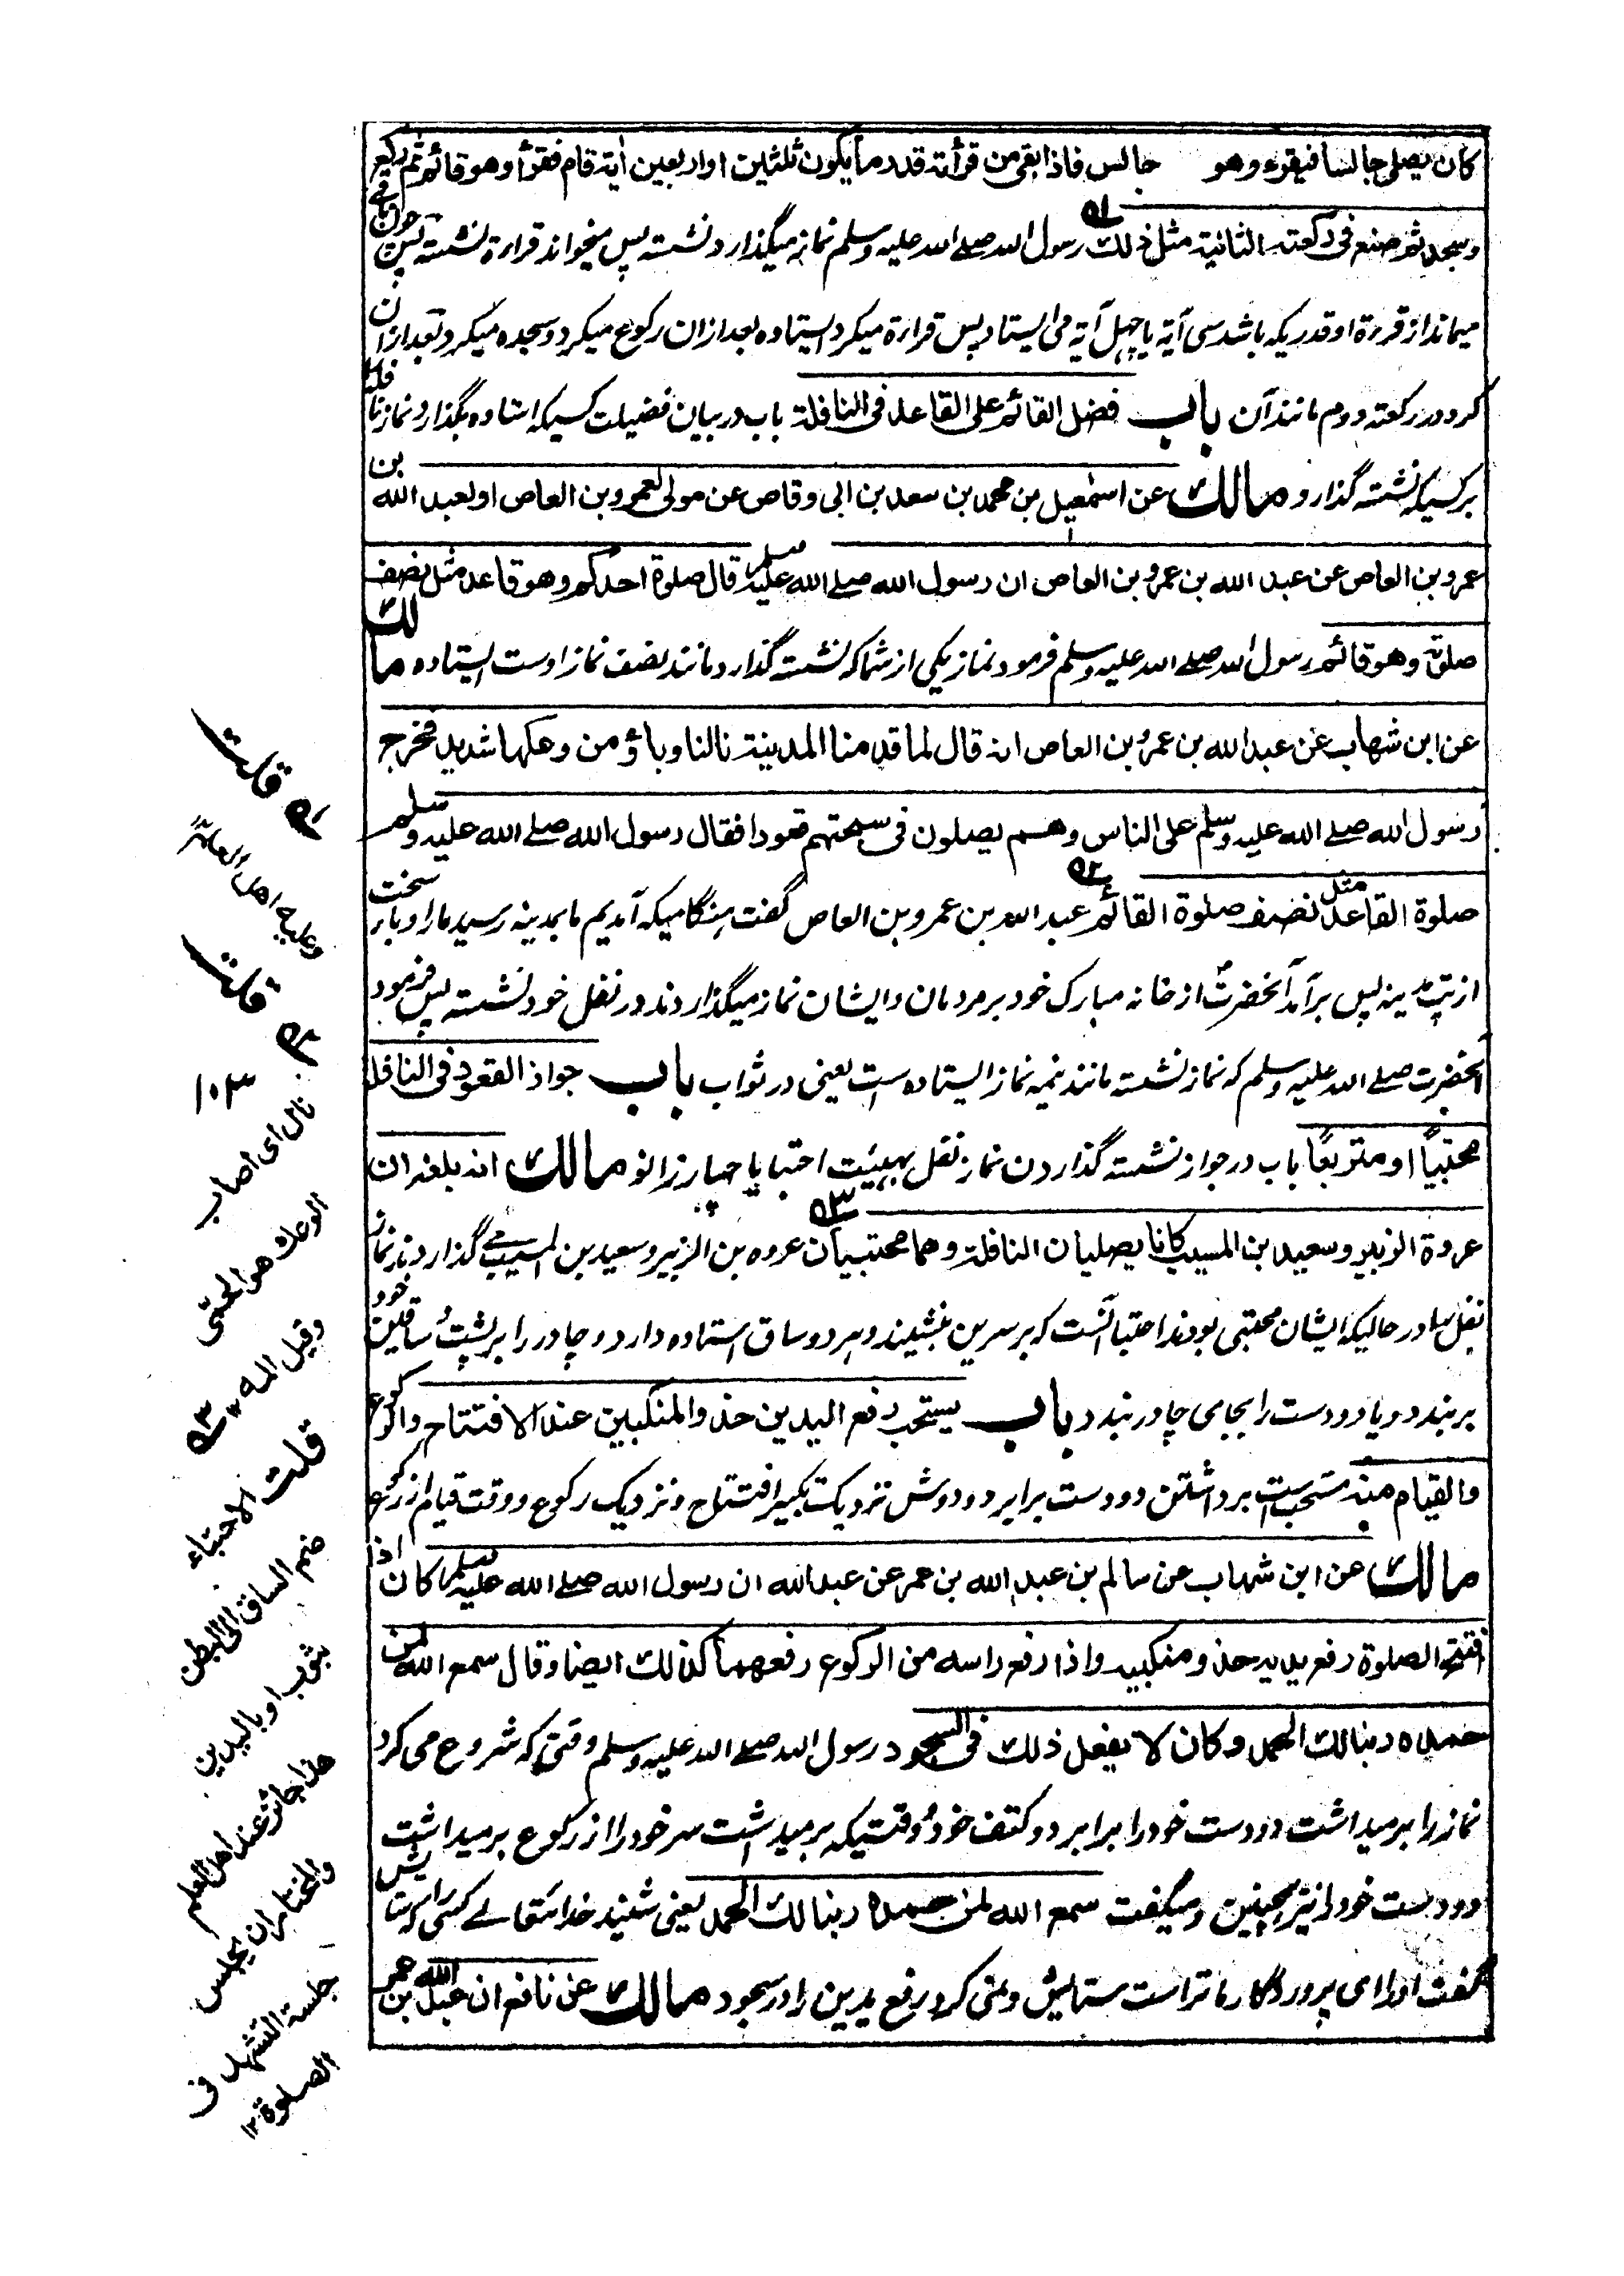 كان يصلى جالسا فيقرء وهو جالس فاذا بقى من قرأته قدر ما يكون ثلثين او اربعين اٰية قام فقرأ وهو قائم ثم ركع
وسجد ثم صنع فى ركعته الثانية مثل ذلك ۵۱ رسول الله صلے الله عليه وسلم نماز ميگذارد نشسته پس ميخواند قراءة نشسته پس چون باقے
ميماند از قراءة او قدريكه باشد سى آية يا چهل آية مى ايستاد پس قراءة ميكرد ايستاده بعد ازان ركوع ميكرد و سجده ميكرد بعد ازان
كرد در ركعته دوم مانند آن باب فضل القائم على القاعد فى النافلة باب در بيان فضيلت كسيكه استاده بگذارد نماز نافله
بر كسيكه نشسته گذارد مالك عن اسمٰعيل بن محمد بن سعد بن ابى وقاص عن مولى لعمرو بن العاص او لعبد الله بن
عمرو بن العاص عن عبد الله بن عمرو بن العاص ان رسول الله صلے الله عليه وسلم قال صلوة احدكم وهو قاعد مثل نصف
صلوته وهو قائم رسول الله صلے الله عليه وسلم فرمود نماز يكى از شما كه نشسته گذارد مانند نصف نماز اوست ايستاده مالك
عن ابن شهاب عن عبد الله بن عمرو بن العاص انه قال لما قدمنا المدينة نالنا وباؤ من وعكها شديد فخرج
رسول الله صلے الله عليه وسلم على الناس وهم يصلون فى سبحتهم قعودا فقال رسول الله صلے الله عليه وسلم
صلوة القاعد مثل نصف صلوة القائم ۵۲ عبد الله بن عمرو بن العاص گفت هنگاميكه آمديم ما بمدينه رسيد ما را وبا سخت
از تپ مدينه پس برآمد آنحضرتؐ از خانه مبارك خود بر مردمان و ايشان نماز ميگذاردند در نفل خود نشسته پس فرمود
آنحضرت صلے الله عليه وسلم كه نماز نشسته مانند نيمه نماز ايستاده است يعنى در ثواب باب جواز القعود فى النافلة
محتبيًا او متربعًا باب در جواز نشسته گذاردن نماز نفل بهيئت احتبا يا چهار زانو مالك انه بلغه ان
عروة الزبير وسعيد بن المسيب كانا يصليان النافلة وهما محتبيان ۵۳ عروه بن الزبير و سعيد بن المسيب مے گذاردند نماز
نفل را در حاليكه ايشان محتبى بودند احتبا آنست كه بر سرين بنشيند و هر دو ساق استاده دارد و چادر را بر پشت و ساقين خود
بربندد و يا دو دست را بجاى چادر بندد باب يستحب رفع اليدين حذو المنكبين عند الافتتاح والركوع
والقيام منه مستحب است برداشتن دو دست برابر دو دوش نزديك تكبير افتتاح و نزديك ركوع و وقت قيام از ركوع
مالك عن ابن شهاب عن سالم بن عبد الله بن عمر عن عبد الله ان رسول الله صلے الله عليه وسلم كان اذا
افتتح الصلوة رفع يديه حذو منكبيه واذا رفع راسه من الركوع رفعهما كذالك ايضا وقال سمع الله لمن
حمده ربنا لك الحمد وكان لا يفعل ذلك فى السجود رسول الله صلے الله عليه وسلم وقتى كه شروع مى كرد
نماز را برميداشت دو دست خود را برابر دو كتف خود و وقتيكه برميداشت سر خود را از ركوع برميداشت
دو دست خود را نيز همچنين و ميگفت سمع الله لمن حمده ربنا لك الحمد يعنى شنيد خداے تعالے كسى را كه ستايش
گفت او را اى پروردگار ما تراست ستايش و نمى كرد رفع يدين را در سجود مالك عن نافع ان عبد الله بن عمر
قلت ۵۱
وعليه اهل العلم
قلت ۵۲
۱۰۳
نال اى اصاب
الوعك هو الحمّى
وقيل المه ۱۲ ۵۳
قلت الاحتباء
ضم الساق الى البطن
بثوب او باليدين
هذا جائز عند اهل العلم
والمختار ان يجلس
جلسة التشهد فى
الصلوة ۱۲